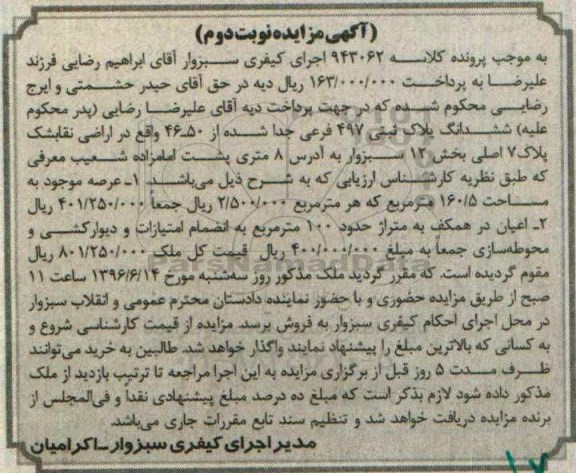 (آگهی مزایده نوبت دوم)
به موجب پرونده کلاسه ۹۴۳۰۶۲ اجرای کیفری سبزوار آقای ابراهیم رضایی فرزند
علیرضا به پرداخت ۱۶۳/۰۰۰/۰۰۰ ریال دیه در حق آقای حیدر حشمتی و ایرج
رضایی محکوم شده که در جهت پرداخت دیه آقای علیرضا رضایی (پدر محکوم
علیه) ششدانگ پلاک ثبتی ۴۹۷ فرعی جدا شده از ۵۰ـ۴۶ واقع در اراضی نقابشک
پلاک ۷ اصلی بخش ۱۲ سبزوار به آدرس ۸ متری پشت امامزاده شعیب معرفی
که طبق نظریه کارشناس ارزیابی که به شرح ذیل می‌باشد. ۱ـ عرصه موجود به
مساحت ۱۶۰/۵ مترمربع که هر مترمربع ۲/۵۰۰/۰۰۰ ریال جمعاً ۴۰۱/۲۵۰/۰۰۰ ریال
۲ـ اعیان در همکف به متراژ حدود ۱۰۰ مترمربع به انضمام امتیازات و دیوارکشی و
محوطه‌سازی جمعاً به مبلغ ۴۰۰/۰۰۰/۰۰۰ ریال قیمت کل ملک ۸۰۱/۲۵۰/۰۰۰ ریال
مقوم گردیده است. که مقرر گردید ملک مذکور روز سه‌شنبه مورخ ۱۳۹۶/۶/۱۴ ساعت ۱۱
صبح از طریق مزایده حضوری و با حضور نماینده دادستان محترم عمومی و انقلاب سبزوار
در محل اجرای احکام کیفری سبزوار به فروش برسد. مزایده از قیمت کارشناسی شروع و
به کسانی که بالاترین مبلغ را پیشنهاد نمایند واگذار خواهد شد. طالبین به خرید می‌توانند
ظرف مدت ۵ روز قبل از برگزاری مزایده به این اجرا مراجعه تا ترتیب بازدید از ملک
مذکور داده شود لازم بذکر است که مبلغ ده درصد مبلغ پیشنهادی نقداً و فی‌المجلس از
برنده مزایده دریافت خواهد شد و تنظیم سند تابع مقررات جاری می‌باشد.
مدیر اجرای کیفری سبزوار ـ اکرامیان